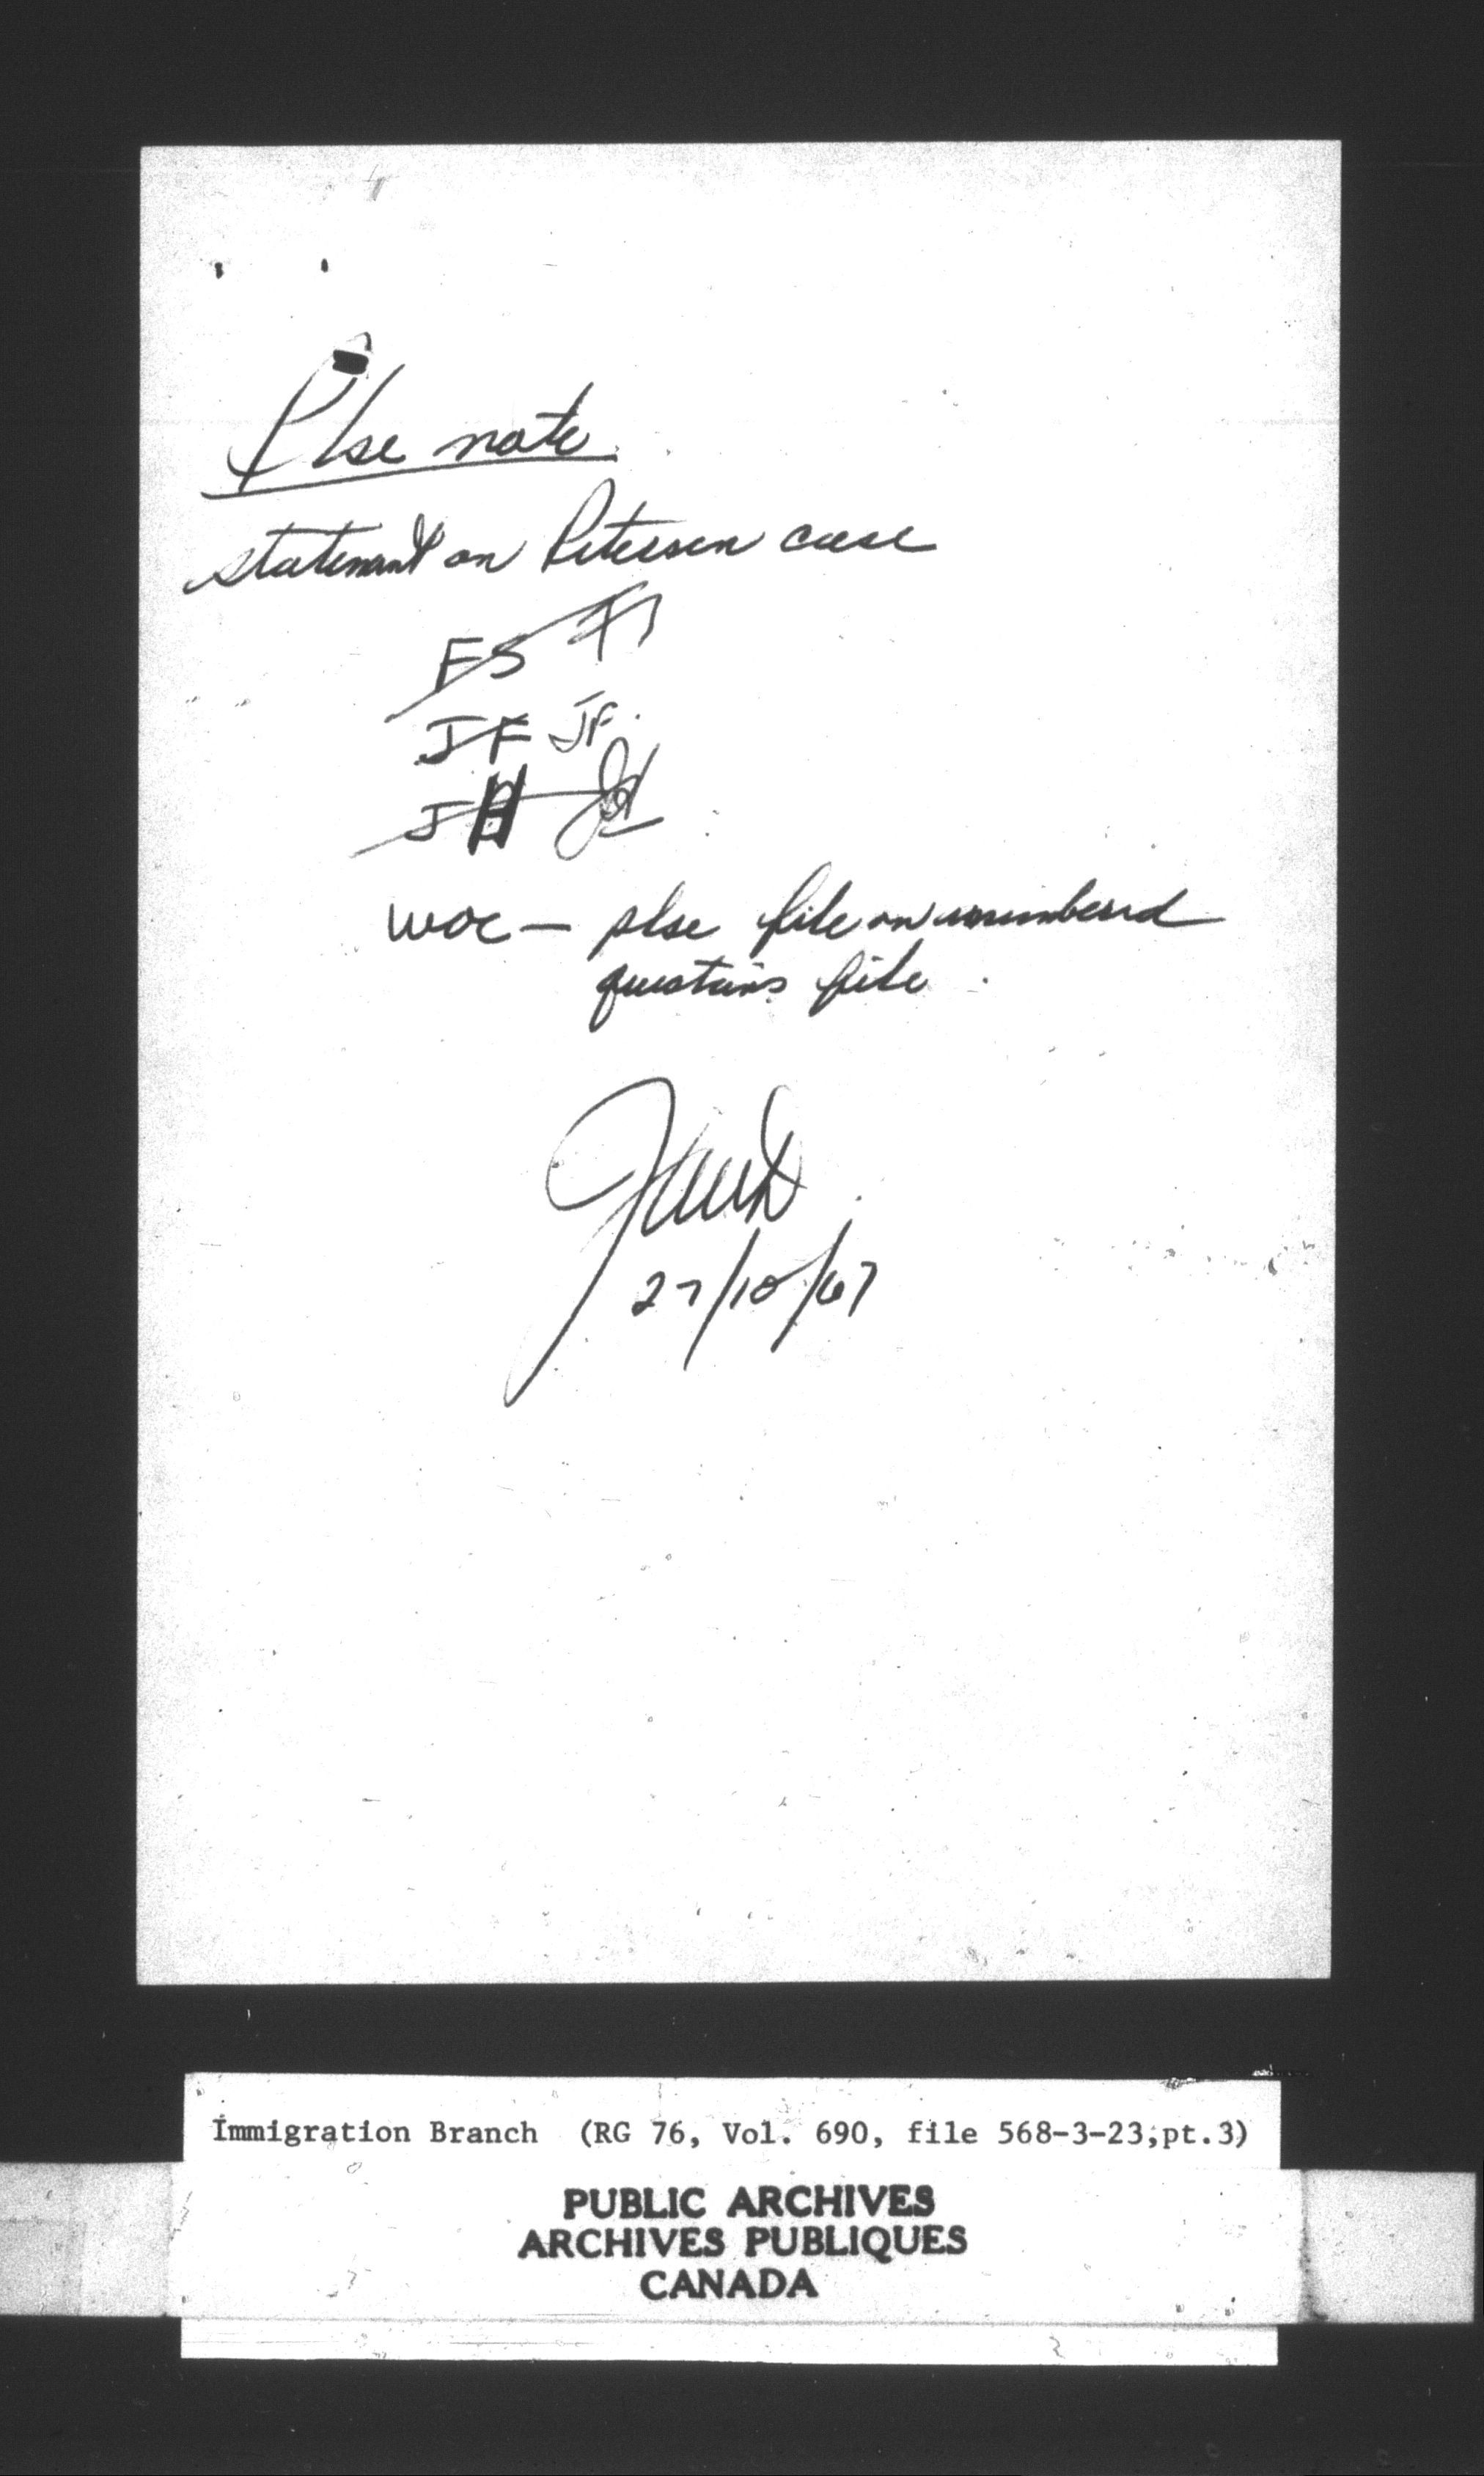 Plse note
statement on Petersen case
ES
JF JF.
J
WOC — plse file on unnumbered
questions file.
27/10/67
Immigration Branch (RG 76, Vol. 690, file 568-3-23,pt.3)
PUBLIC ARCHIVES
ARCHIVES PUBLIQUES
CANADA